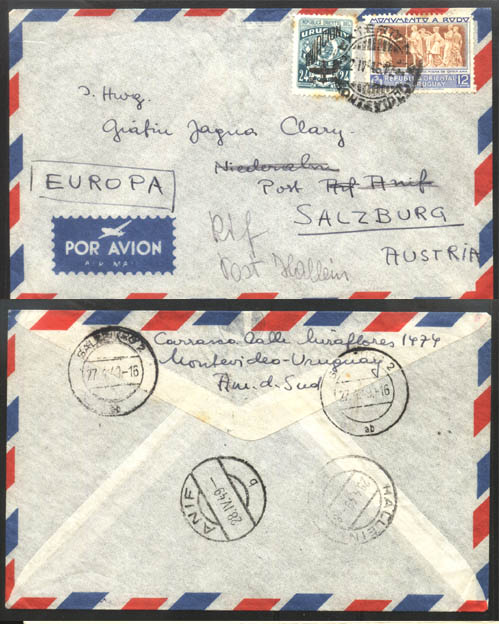 REPUBLICA ORIENTAL DEL
URUGUAY
24 24
MONUMENTO A RODO
REPUBLICA ORIENTAL 12
URUGUAY
I. Hwg.
Gräfin Jagna Clary
Niederalm
EUROPA
Post Rif Anif
SALZBURG
AUSTRIA
POR AVION
AIR MAIL
Rif
Post Hallein
Carrasco Calle Miraflores 1474
Montevideo-Uruguay
Am. d. Sud
SALZBURG 2
-16
2
-16
ab
ANIF
28.IV.49-
b
HALLEIN